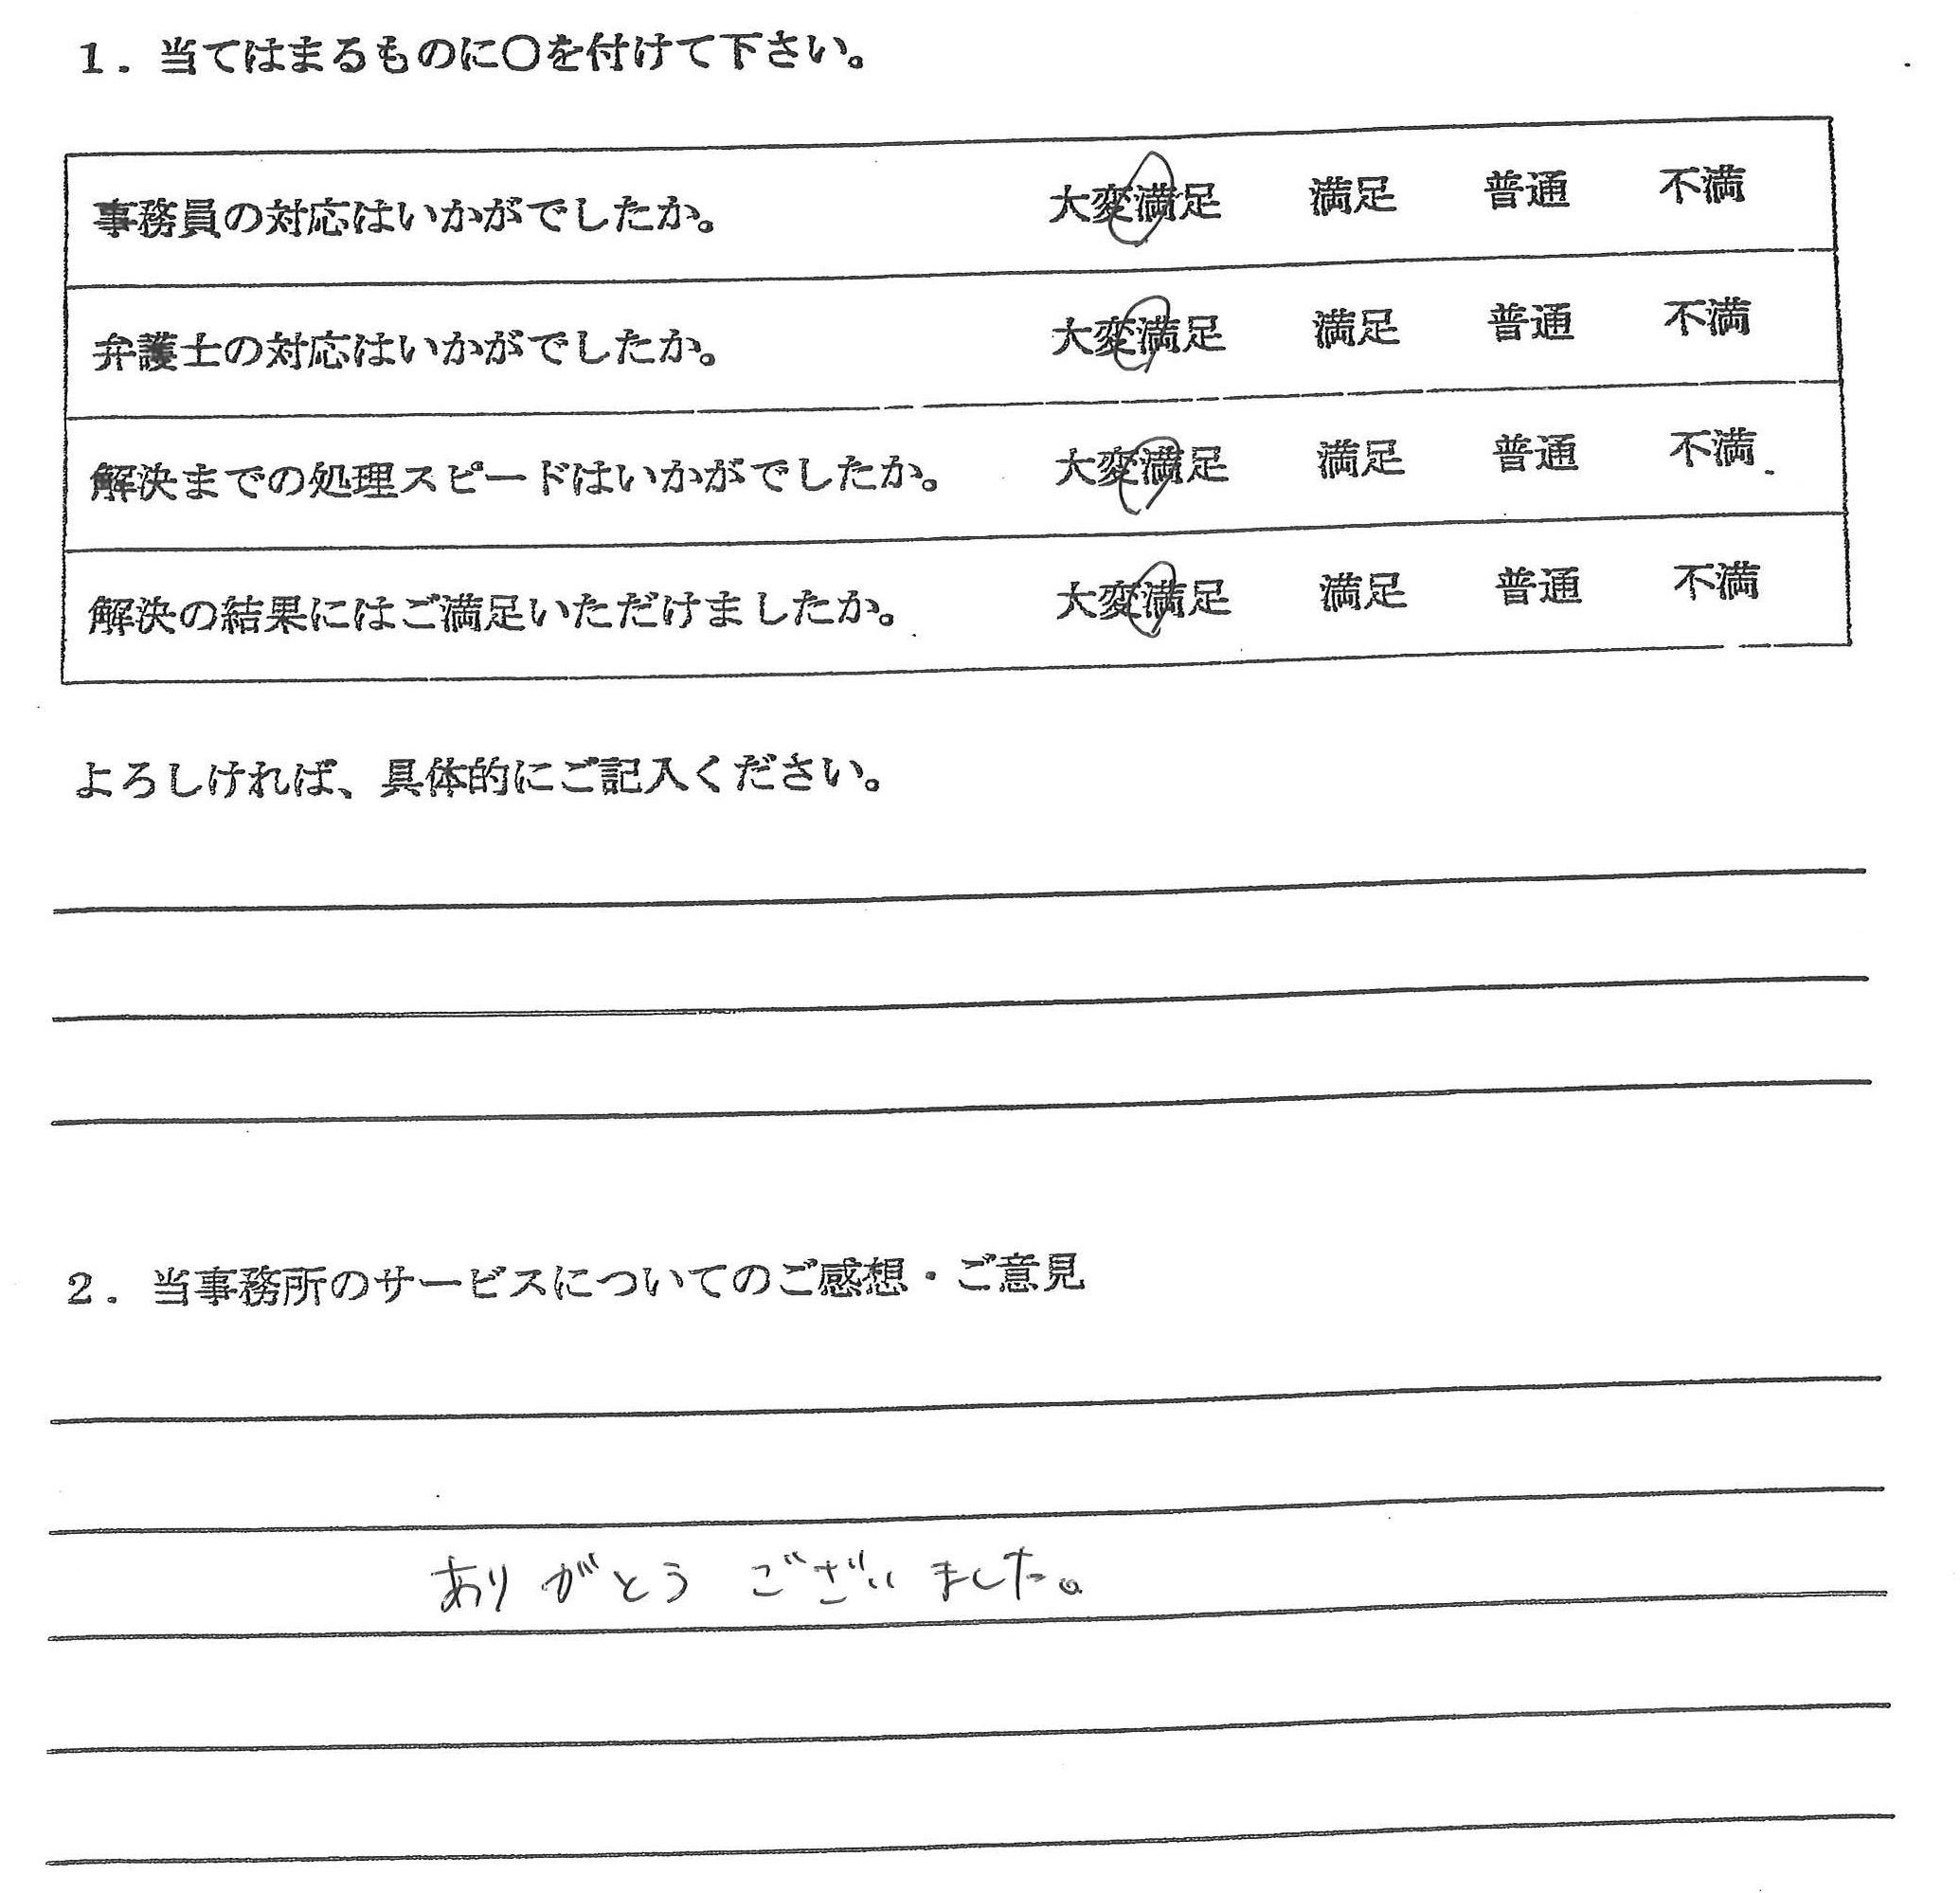 1．当てはまるものに○を付けて下さい。
事務員の対応はいかがでしたか。 大変満足 満足 普通 不満
弁護士の対応はいかがでしたか。 大変満足 満足 普通 不満
解決までの処理スピードはいかがでしたか。 大変満足 満足 普通 不満
解決の結果にはご満足いただけましたか。 大変満足 満足 普通 不満
よろしければ、具体的にご記入ください。
2．当事務所のサービスについてのご感想・ご意見
ありがとうございました。